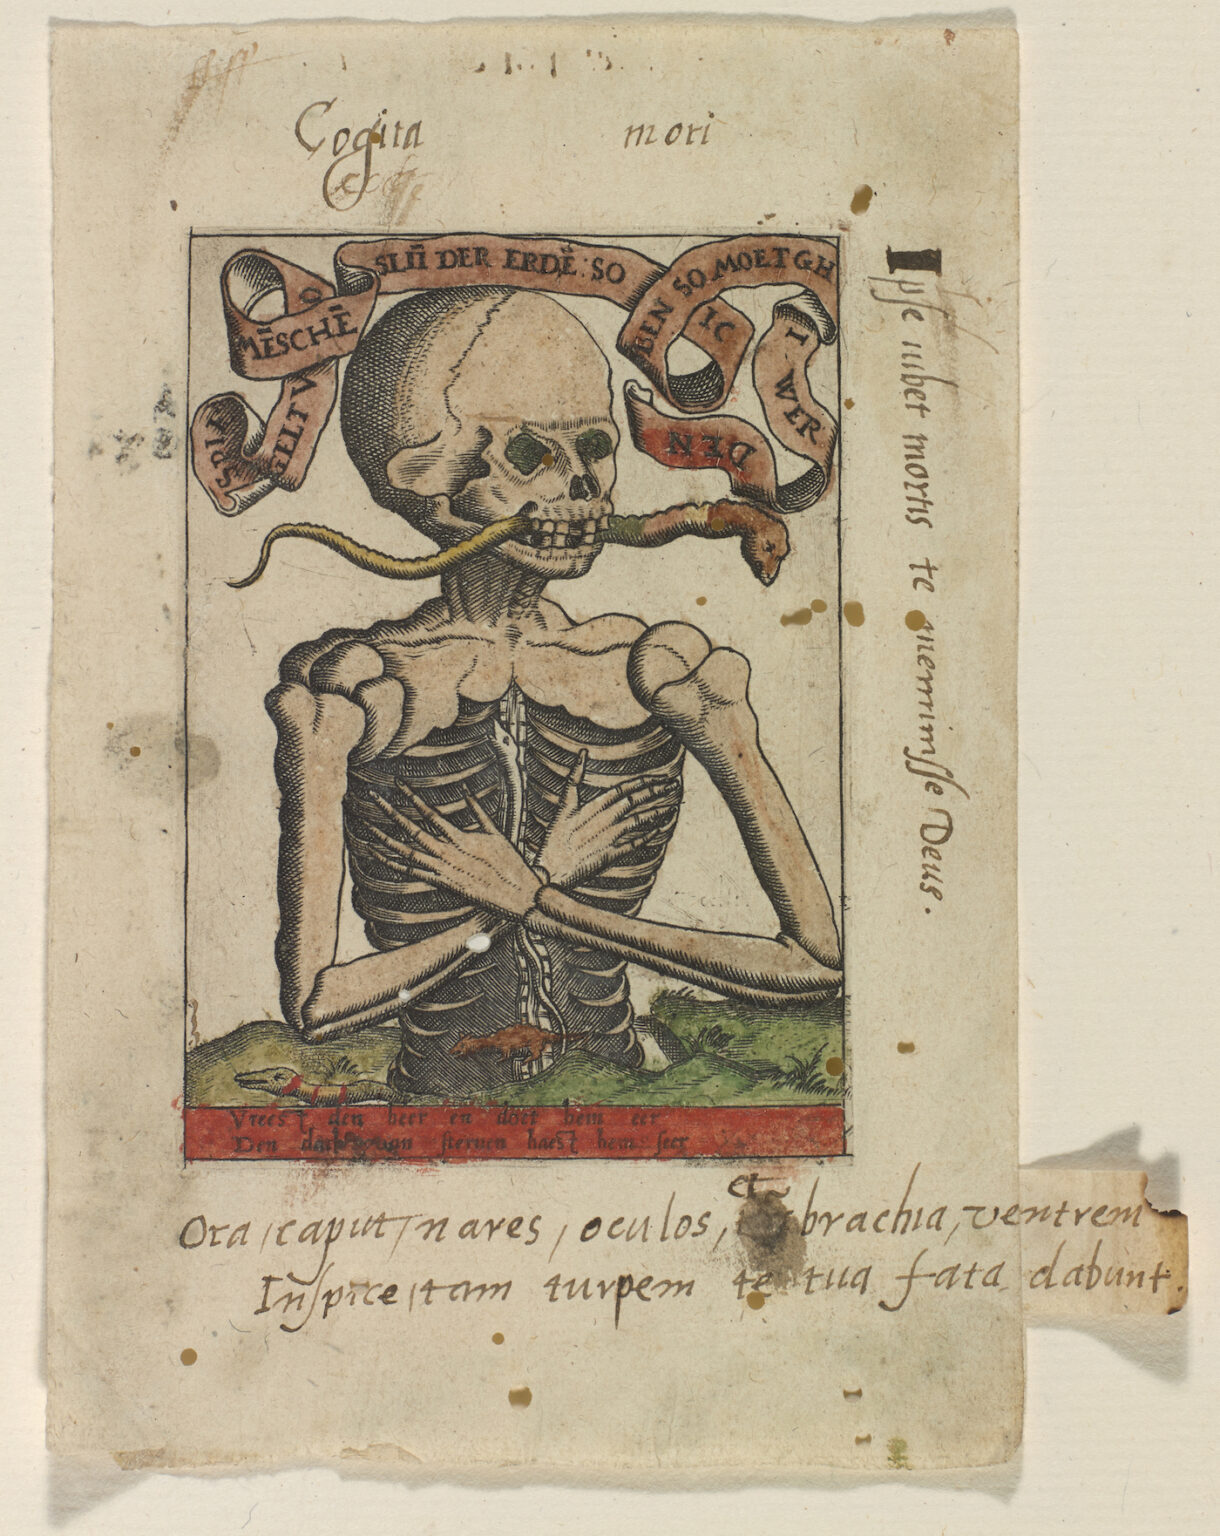 Cogita mori
SPIE
GELT V
O MĒSCHĒ
SLIĪ DER ERDĒ : SO
IC
BEN SO MOETGH
I WER
DEN
Ipse iubet mortis te meminisse Deus.
Vreest den heer en doet hem eer
Den sterven haest hem seer
Ora, caput, nares, oculos, et brachia, ventrem
Inspice, tam turpem te tua fata dabunt.